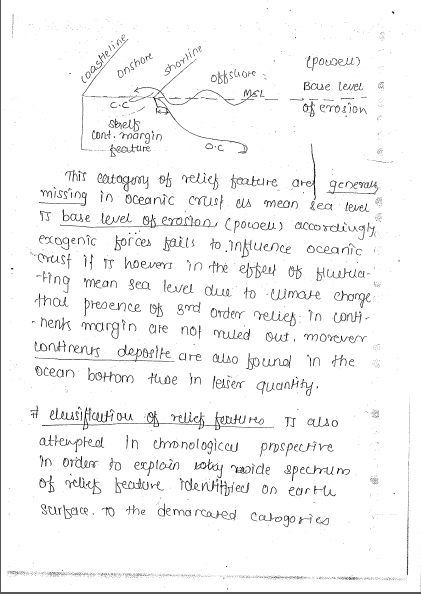 coastheline
onshore
shortline
offshore
(powell)
Base level
of erosion
MSL
C.C
shelf
cont. margin
feature
O.C
This catagory of relief feature are generally
missing in oceanic crust as mean sea level
is base level of erosion, (powell) accordingly
exogenic forces fails to influence oceanic
crust if is hoevers in the effect of fluctua-
-ting mean sea level due to climate charge
that presence of 3rd order relief in conti-
-nents margin are not ruled out. morever
continents deposite are also found in the
ocean bottom in lesser quantity.
# classification of relief features is also
attempted in chronological prospective
in order to explain wide spectrum
of relief feature identified on earth
surface. To the demarcated catogories